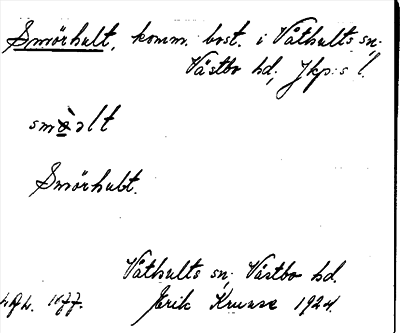 Smörhult, komm. bost. i Våthults sn;
Västbo hd; Jkp:s l.
smə̀əlt
Smörhult.
Våthults sn; Västbo hd.
1677. Erik Kruuse 1924.